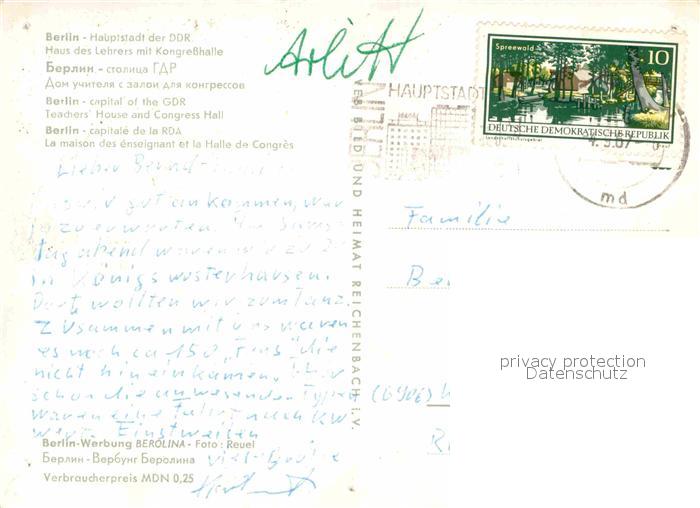 Berlin - Hauptstadt der DDR
Haus des Lehrers mit Kongreßhalle
Берлин - столица ГДР
Дом учителя с залом для конгрессов
Berlin - capital of the GDR
Teachers' House and Congress Hall
Berlin - capitale de la RDA
La maison des énseignant et la Halle de Congrès
Arlitt
HAUPTSTADT
BERLIN
Spreewald
10
DEUTSCHE DEMOKRATISCHE REPUBLIK
Landschaftsschutzgebiet
md
VEB BILD UND HEIMAT REICHENBACH i. V.
Lieber Bernd
wir gut ankamen, war
ja zu erwarten. Am Sams-
tag abend waren wir zu
in Königswusterhausen.
Dort wollten wir zum Tanz.
Zusammen mit uns waren
es noch ca 150 „Fans" die
nicht hineinkamen. Aber
schon die anwesenden Typen
waren eine Fahrt nach KW
wert. Einstweilen
viele Grüße
Familie
Be
R
privacy protection
Datenschutz
Berlin-Werbung BEROLINA - Foto: Reuel
Берлин - Вербунг Беролина
Verbraucherpreis MDN 0,25